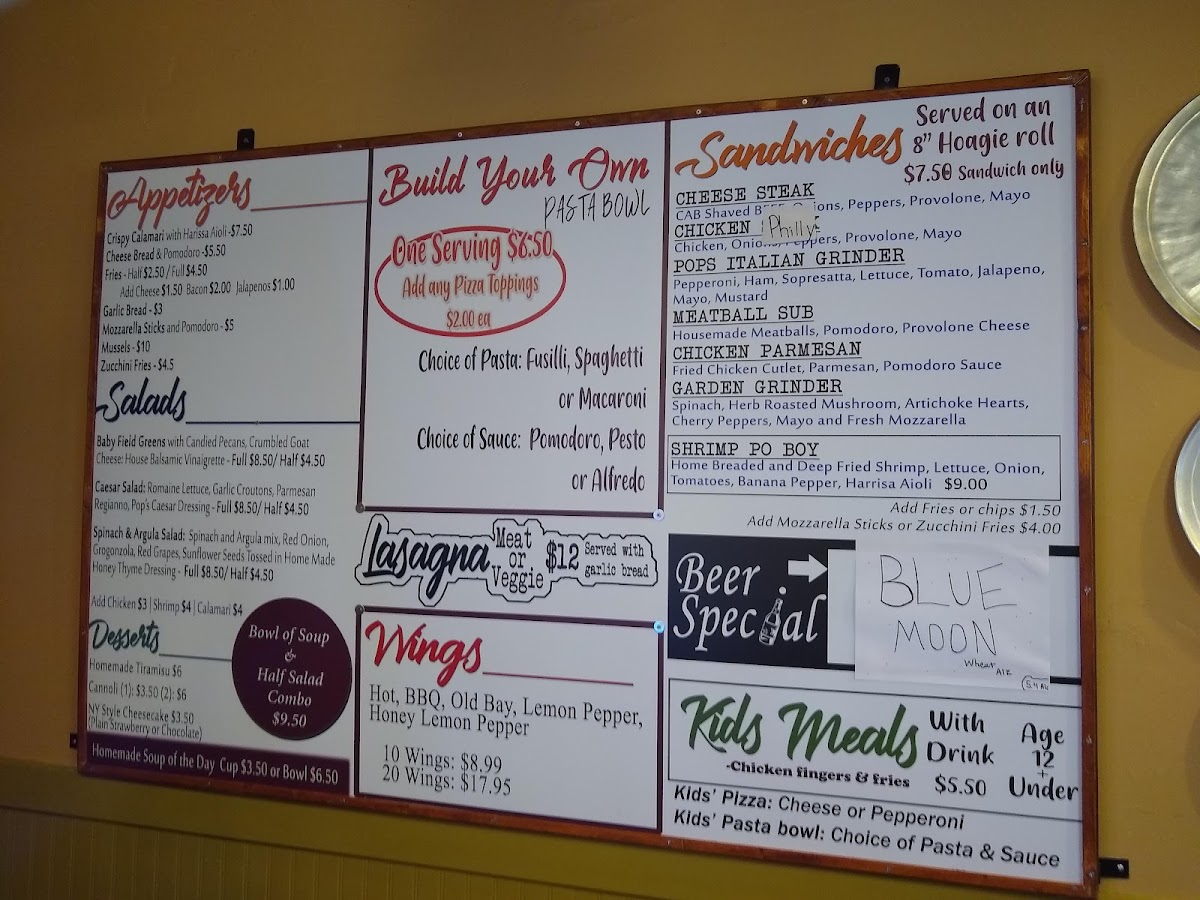 Appetizers
Crispy Calamari with Harissa Aioli -$7.50
Cheese Bread & Pomodoro -$5.50
Fries - Half $2.50 / Full $4.50
Add Cheese $1.50 Bacon $2.00 Jalapenos $1.00
Garlic Bread - $3
Mozzarella Sticks and Pomodoro - $5
Mussels - $10
Zucchini Fries - $4.5
Salads
Baby Field Greens with Candied Pecans, Crumbled Goat
Cheese: House Balsamic Vinaigrette - Full $8.50/ Half $4.50
Caesar Salad: Romaine Lettuce, Garlic Croutons, Parmesan
Regianno, Pop's Caesar Dressing - Full $8.50/ Half $4.50
Spinach & Argula Salad: Spinach and Argula mix, Red Onion,
Grogonzola, Red Grapes, Sunflower Seeds Tossed in Home Made
Honey Thyme Dressing - Full $8.50/ Half $4.50
Add Chicken $3 | Shrimp $4 | Calamari $4
Desserts
Homemade Tiramisu $6
Cannoli (1): $3.50 (2): $6
NY Style Cheesecake $3.50
(Plain Strawberry or Chocolate)
Bowl of Soup
&
Half Salad
Combo
$9.50
Homemade Soup of the Day Cup $3.50 or Bowl $6.50
Build Your Own
PASTA BOWL
One Serving $6.50
Add any Pizza Toppings
$2.00 ea
Choice of Pasta: Fusilli, Spaghetti
or Macaroni
Choice of Sauce: Pomodoro, Pesto
or Alfredo
Lasagna Meat or Veggie $12 Served with garlic bread
Wings
Hot, BBQ, Old Bay, Lemon Pepper,
Honey Lemon Pepper
10 Wings: $8.99
20 Wings: $17.95
Sandwiches
Served on an
8" Hoagie roll
$7.50 Sandwich only
CHEESE STEAK
CAB Shaved Onions, Peppers, Provolone, Mayo
CHICKEN Philly
Chicken, Onions, Peppers, Provolone, Mayo
POPS ITALIAN GRINDER
Pepperoni, Ham, Sopresatta, Lettuce, Tomato, Jalapeno,
Mayo, Mustard
MEATBALL SUB
Housemade Meatballs, Pomodoro, Provolone Cheese
CHICKEN PARMESAN
Fried Chicken Cutlet, Parmesan, Pomodoro Sauce
GARDEN GRINDER
Spinach, Herb Roasted Mushroom, Artichoke Hearts,
Cherry Peppers, Mayo and Fresh Mozzarella
SHRIMP PO BOY
Home Breaded and Deep Fried Shrimp, Lettuce, Onion,
Tomatoes, Banana Pepper, Harrisa Aioli $9.00
Add Fries or chips $1.50
Add Mozzarella Sticks or Zucchini Fries $4.00
Beer
Special
BLUE
MOON
Wheat Ale
Kids Meals
-Chicken fingers & fries
With
Drink
$5.50
Age
12
+
Under
Kids' Pizza: Cheese or Pepperoni
Kids' Pasta bowl: Choice of Pasta & Sauce